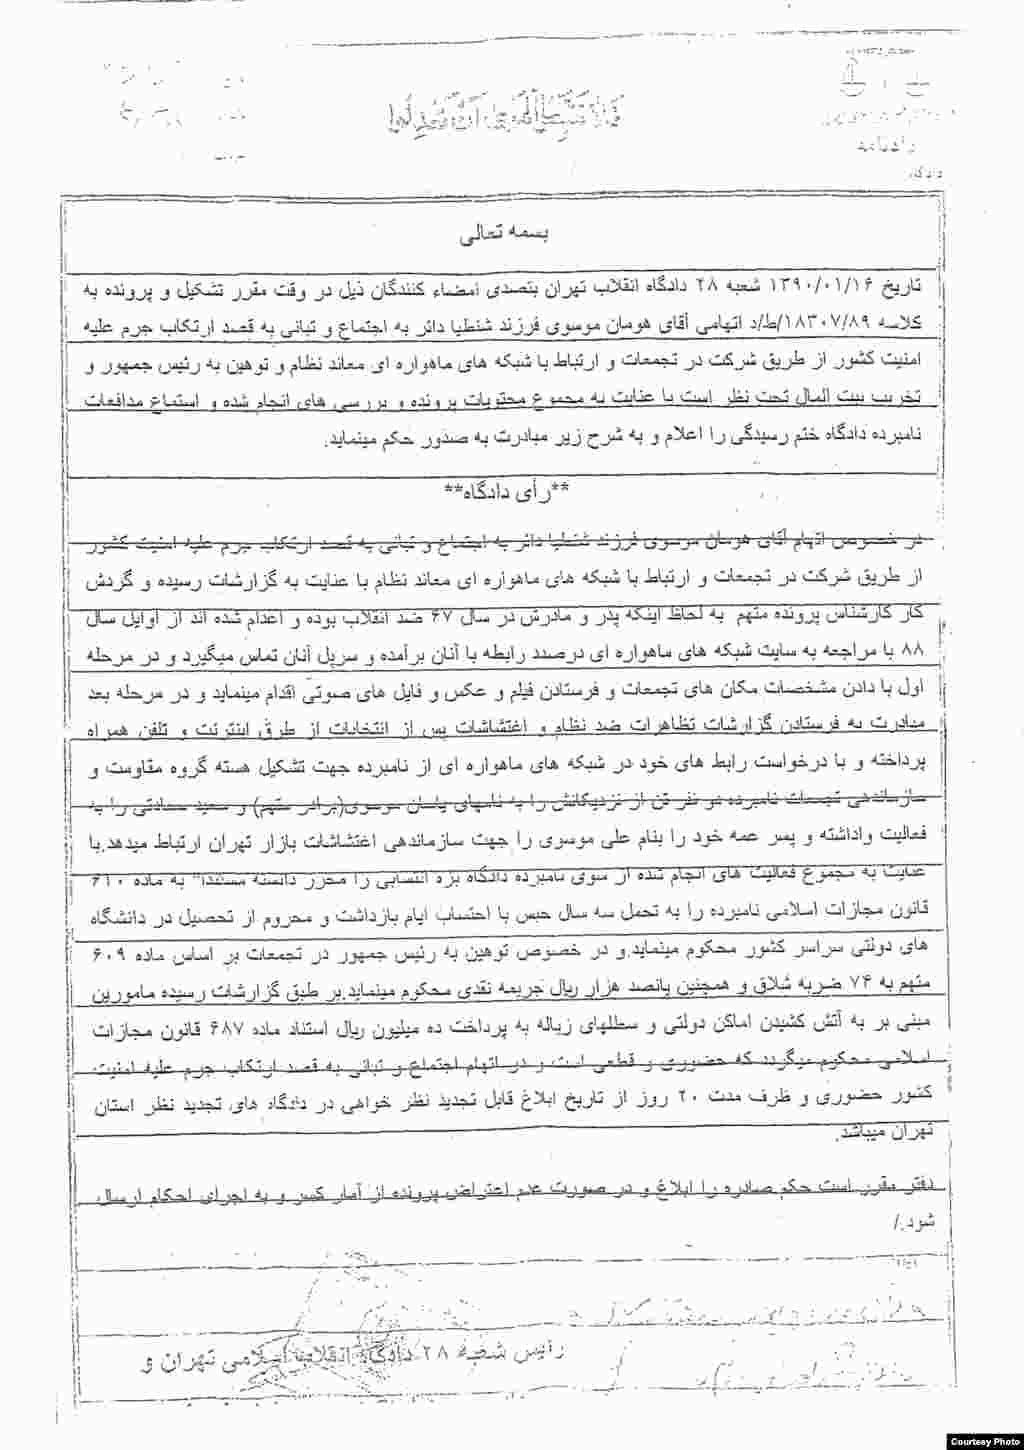 فلا تتبعوا الهوی ان تعدلوا
دادنامه
بسمه تعالی
تاریخ ۱۳۹۰/۰۱/۱۶ شعبه ۲۸ دادگاه انقلاب تهران بتصدی امضاء کنندگان ذیل در وقت مقرر تشکیل و پرونده به
کلاسه ۱۸۳۰۷/۸۹/ط/د اتهامی آقای هومان موسوی فرزند شنطیا دائر به اجتماع و تبانی به قصد ارتکاب جرم علیه
امنیت کشور از طریق شرکت در تجمعات و ارتباط با شبکه های ماهواره ای معاند نظام و توهین به رئیس جمهور و
تخریب بیت المال تحت نظر است با عنایت به مجموع محتویات پرونده و بررسی های انجام شده و استماع مدافعات
نامبرده دادگاه ختم رسیدگی را اعلام و به شرح زیر مبادرت به صدور حکم مینماید.
**رأی دادگاه**
در خصوص اتهام آقای هومان موسوی فرزند شنطیا دائر به اجتماع و تبانی به قصد ارتکاب جرم علیه امنیت کشور
از طریق شرکت در تجمعات و ارتباط با شبکه های ماهواره ای معاند نظام با عنایت به گزارشات رسیده و گردش
کار کارشناس پرونده متهم به لحاظ اینکه پدر و مادرش در سال ۶۷ ضد انقلاب بوده و اعدام شده اند از اوایل سال
۸۸ با مراجعه به سایت شبکه های ماهواره ای درصدد رابطه با آنان برآمده و سرپل آنان تماس میگیرد و در مرحله
اول با دادن مشخصات مکان های تجمعات و فرستادن فیلم و عکس و فایل های صوتی اقدام مینماید و در مرحله بعد
مبادرت به فرستادن گزارشات تظاهرات ضد نظام و اغتشاشات پس از انتخابات از طرق اینترنت و تلفن همراه
پرداخته و با درخواست رابط های خود در شبکه های ماهواره ای از نامبرده جهت تشکیل هسته گروه مقاومت و
سازماندهی تجمعات نامبرده دو نفر تن از نزدیکانش را به نامهای یاسان موسوی(برادر متهم) و سعید سعادتی را به
فعالیت واداشته و پسر عمه خود را بنام علی موسوی را جهت سازماندهی اغتشاشات بازار تهران ارتباط میدهد.با
عنایت به مجموع فعالیت های انجام شده از سوی نامبرده دادگاه بزه انتسابی را محرز دانسته مستندا" به ماده ۶۱۰
قانون مجازات اسلامی نامبرده را به تحمل سه سال حبس با احتساب ایام بازداشت و محروم از تحصیل در دانشگاه
های دولتی سراسر کشور محکوم مینماید.و در خصوص توهین به رئیس جمهور در تجمعات بر اساس ماده ۶۰۹
متهم به ۷۴ ضربه شلاق و همچنین پانصد هزار ریال جریمه نقدی محکوم مینماید.بر طبق گزارشات رسیده مامورین
مبنی بر به آتش کشیدن اماکن دولتی و سطلهای زباله به پرداخت ده میلیون ریال استناد ماده ۶۸۷ قانون مجازات
اسلامی محکوم میگردد که حضوری و قطعی است و در اتهام اجتماع و تبانی به قصد ارتکاب جرم علیه امنیت
کشور حضوری و ظرف مدت ۲۰ روز از تاریخ ابلاغ قابل تجدید نظر خواهی در دادگاه های تجدید نظر استان
تهران میباشد.
دفتر مقرر است حکم صادره را ابلاغ و در صورت عدم اعتراض پرونده از آمار کسر و به اجرای احکام ارسال
شود./
رئیس شعبه ۲۸ دادگاه انقلاب اسلامی تهران و
Courtesy Photo